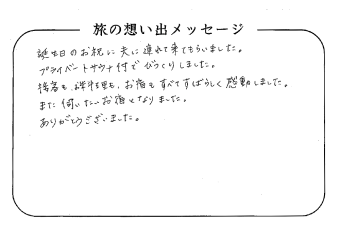 旅の想い出メッセージ
誕生日のお祝に夫に連れて来てもらいました。
プライベートサウナ付でびっくりしました。
接客も、お料理も、お宿もすべてすばらしく感動しました。
また伺いたいお宿となりました。
ありがとうございました。